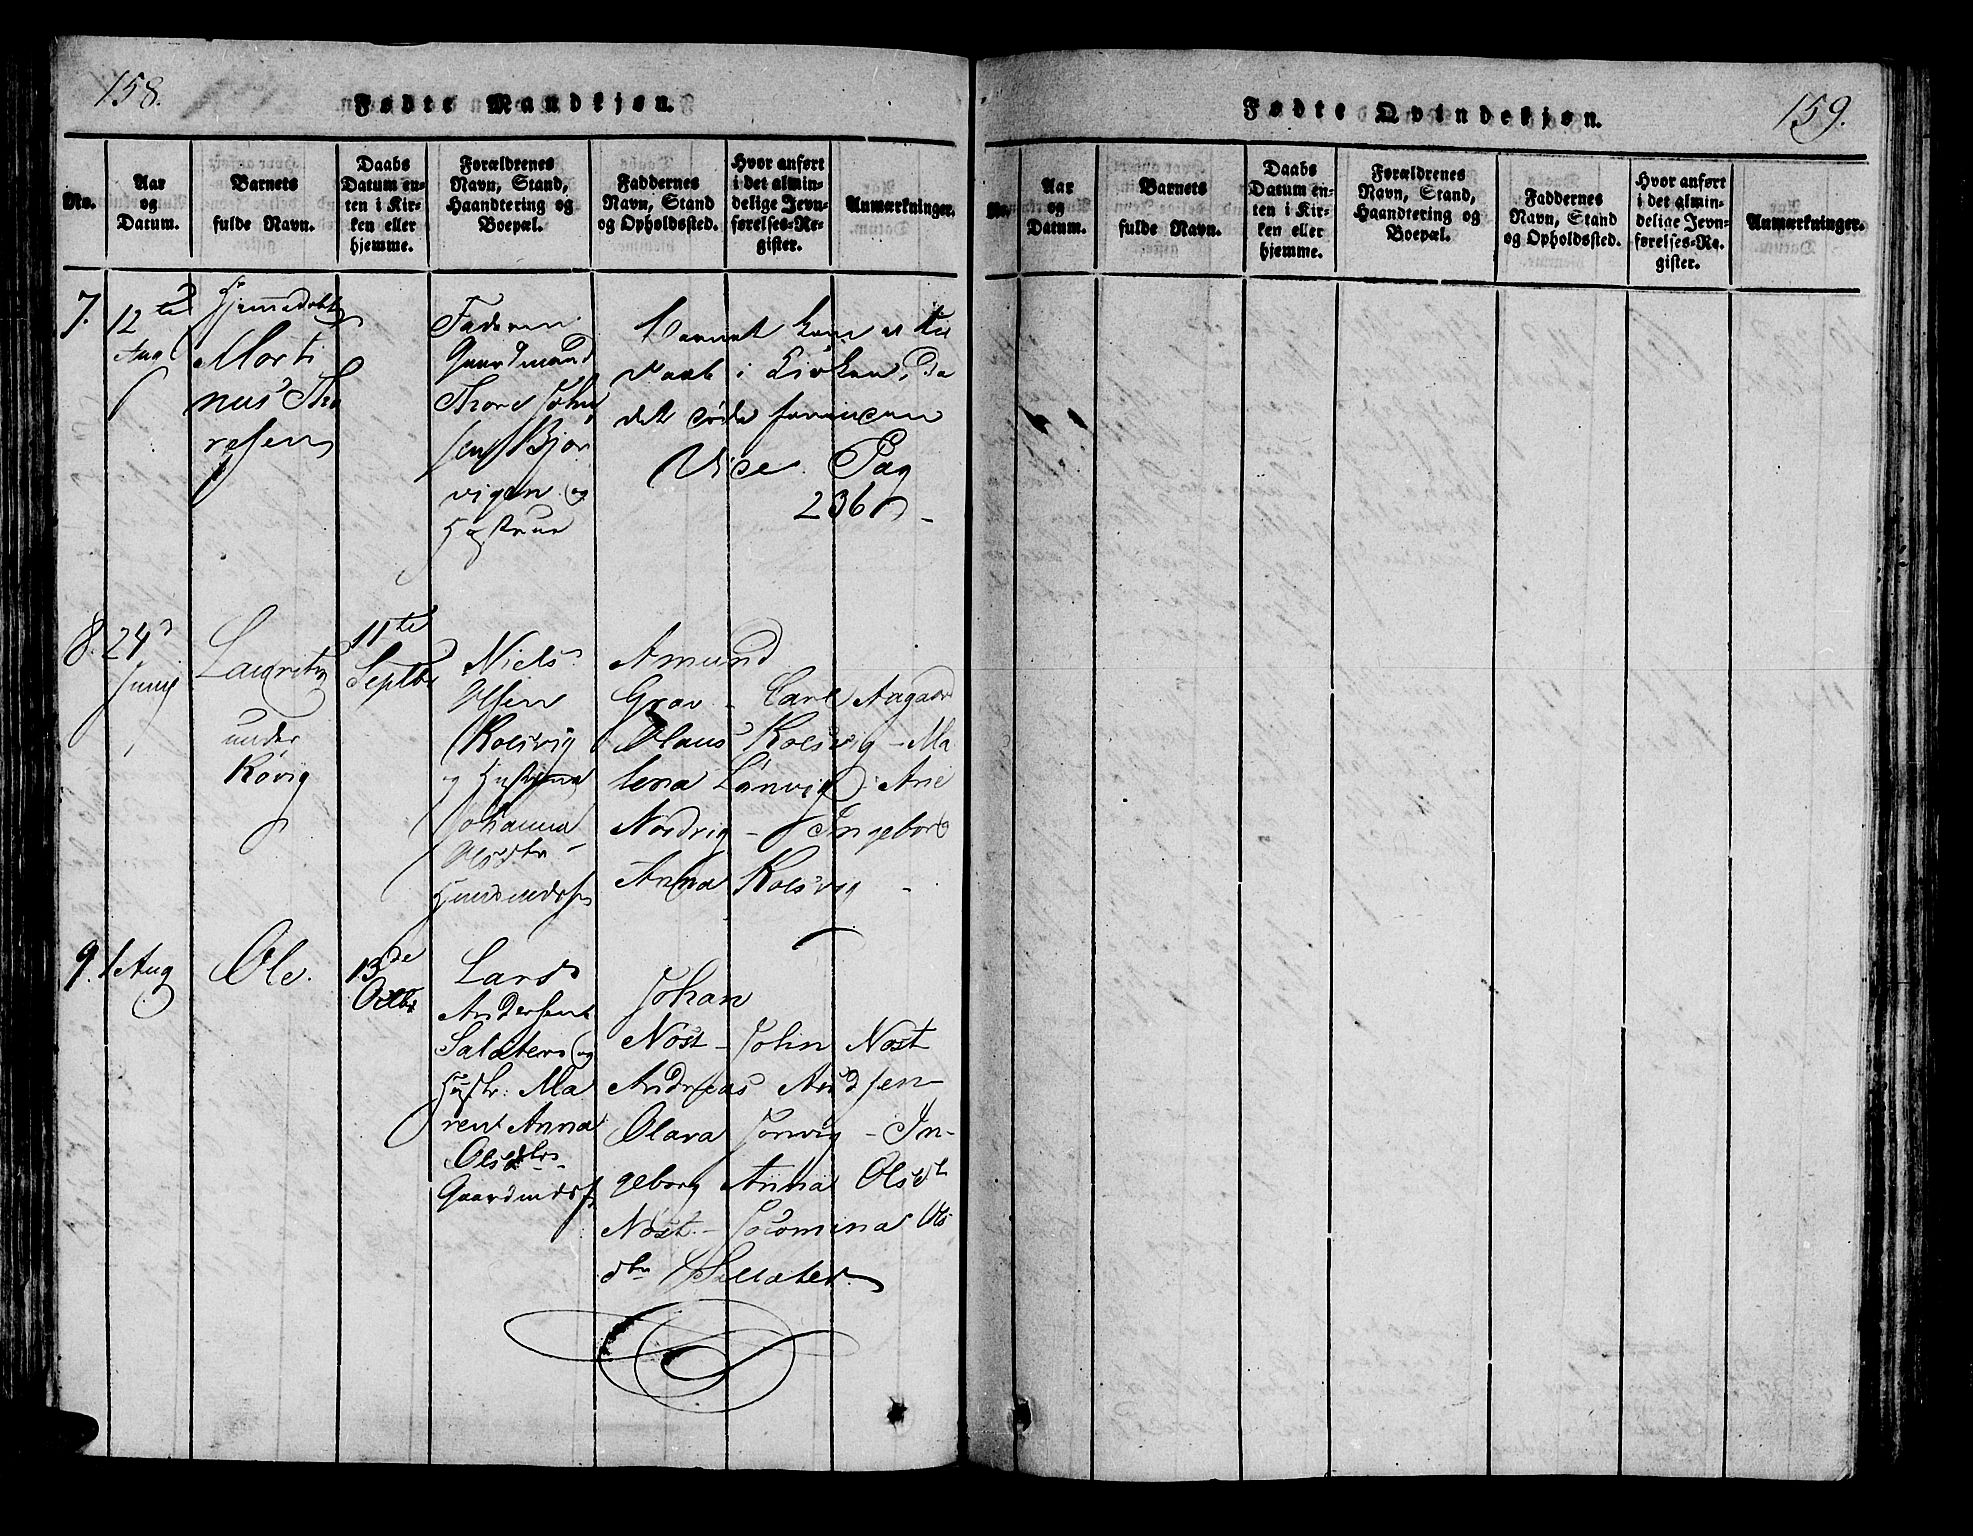 158.
Fødte Mandkjøn.
No.
Aar
og
Datum.
Barnets
fulde Navn.
Daabs
Datum en-
ten i Kir-
ken eller
hjemme.
Forældrenes
Navn, Stand,
Haandtering og
Boepæl.
Faddernes
Navn, Stand
og Opholdssted.
Hvor anført
i det almin-
delige Jevn-
førelses-Re-
gister.
Anmærkninger.
7.
12te
Aug
Hjemedøbt
Morti
nus Tho
resen
Faderen
Gaardmand
Thore John
sen Bjør
vigen og
Hustrue
Barnet kom ei til
Daab i Kirken, da
det døde forinden
Vide Pag
236
8.
24
Junij
Lauritz
under
Røvig
11te
Septbr
Niels
Olsen
Kolsvig
og Hustrue
Johanna
Olsdtr
Huusmdsf
Amund
Grav - Carl Aagaard
Olaus Kolsvig - Ma
lena Lönvig - Ane
Nordvig - Ingebor
Anna Kolsvig -
9.
1te Aug
Ole.
13de
Octbr
Lars
Andersen
Salater og
Hustr: Ma
ren Anna
Olsdtr
Gaardmdsf
Johan
Nøst - John Nøst
Andreas Andsen
Olava - In-
geborg Anna Olsdt
Nøst - Jocomina Ols
dtr
159.
Fødte Qvindekjøn.
No.
Aar
og
Datum.
Barnets
fulde Navn.
Daabs
Datum en-
ten i Kir-
ken eller
hjemme.
Forældrenes
Navn, Stand,
Haandtering og
Boepæl.
Faddernes
Navn, Stand
og Opholdssted.
Hvor anført
i det almin-
delige Jevn-
førelses-Re-
gister.
Anmærkninger.